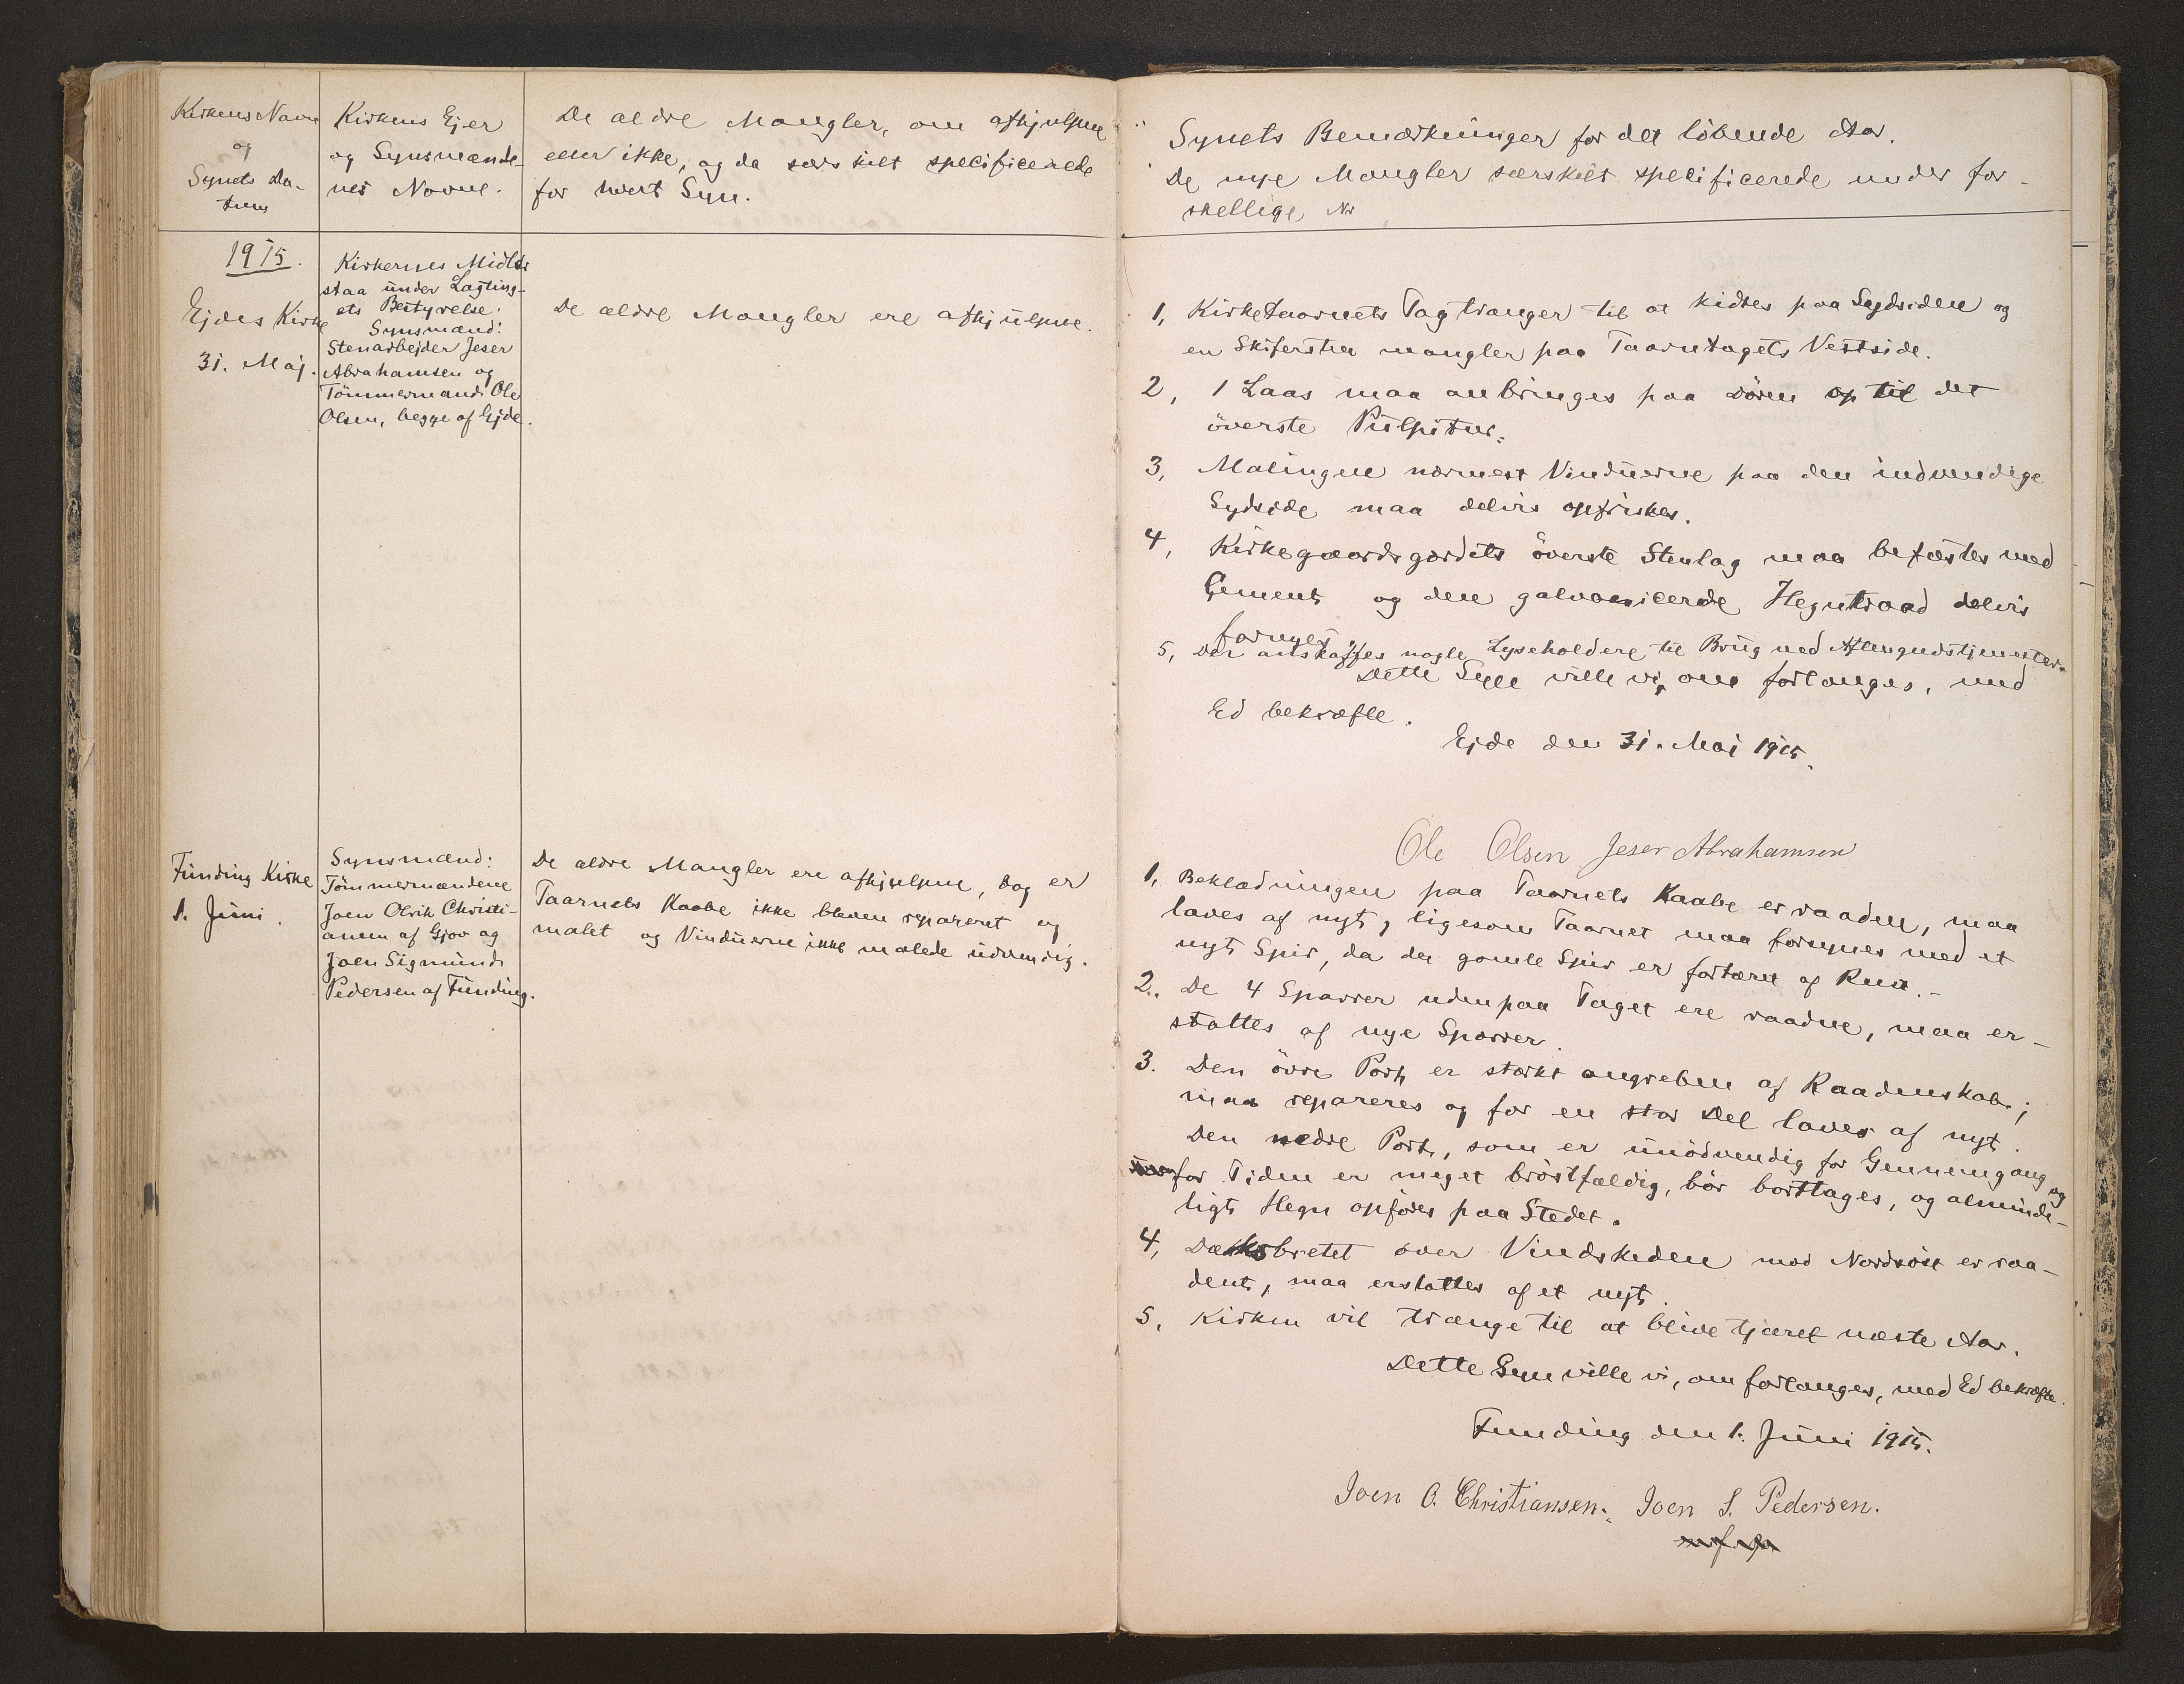 Kirkens Navn
og
Synets Da-
tum
Kirkens Ejer
og Synsmænde-
nes Navne.
De ældre Mangler, om afhjulpne
eller ikke, og da særskilt specificerede
for hvert Syn.
Synets Bemærkninger for det löbende Aar.
De nye Mangler særskilt specificerede under for-
skellige Nr
1915.
Ejdes Kirke
31. Maj.
Kirkernes Midler
staa under Lagting-
ets Bestyrelse.
Synsmænd:
Stenarbejder Jeser
Abrahamsen og
Tömmermand Ole
Olsen, begge af Ejde.
De ældre Mangler ere afhjulpne.
1, Kirketaarnets Tag trænger til at kidtes paa Sydsiden og
en Skifersten mangler paa Taarntagets Vestside.
2, 1 Laas maa anbringes paa Dören op til det
överste Pulpitur.
3, Malingen nærmest Vinduerne paa den indvendige
Sydside maa delvis opfriskes.
4, Kirkegaardsgærdets överste Stenlag maa befæstes med
Cement og den galvanicerede Hegntraad delvis
fornyes.
5, Der anskaffes nogle Lyseholdere til Brug ved Aftengudstjenester.
Dette Syn ville vi, om forlanges, med
Ed bekræfte.
Ejde den 31. Maj 1915.
Ole Olsen Jeser Abrahamsen
Funding Kirke
1. Juni.
Synsmænd:
Tömmermændene
Joen Olrik Christi-
ansen af Gjov og
Joen Sigmund
Pedersen af Funding.
De ældre Mangler ere afhjulpne, dog er
Taarnets Kaabe ikke bleven repareret og
malet og Vinduerne ikke malede udvendig.
1, Beklædningen paa Taarnets Kaabe er raaden, maa
laves af nyt, ligesom Taarnet maa forsynes med et
nyt Spir, da det gamle Spir er fortæret af Rust.-
2. De 4 Sparrer udenpaa Taget ere raadne, maa er-
stattes af nye Sparrer.
3. Den övre Port er stærkt angreben af Raadenskab;
maa repareres og for en stor Del laves af nyt.
Den nedre Port, som er unödvendig for Gennemgang og
for Tiden er meget bröstfældig, bör borttages, og alminde-
ligt Hegn opföres paa Stedet.
4, Dæksbrettet over Vindskeden mod Nordöst er raa-
dent, maa erstattes af et nyt.
5, Kirken vil trænge til at blive tjæret næste Aar.
Dette Syn ville vi, om forlanges, med Ed bekræfte.
Funding den 1. Juni 1915.
Joen O. Christiansen. Joen S. Pedersen.